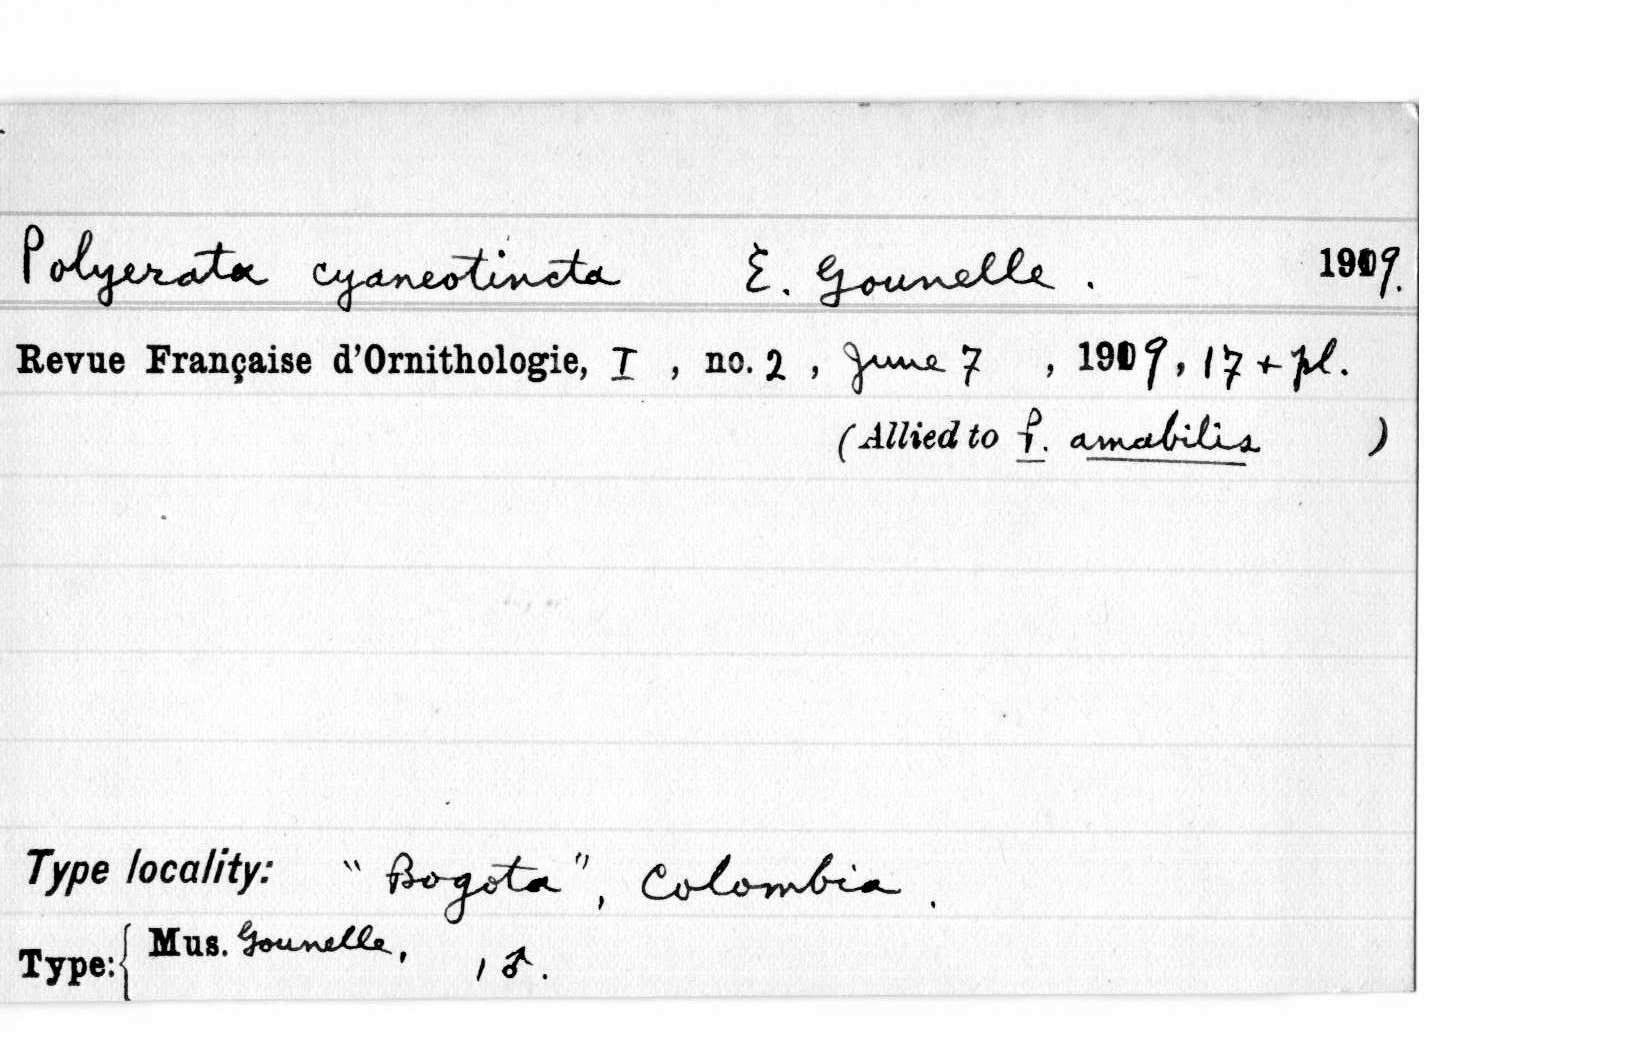 Polyerata cyaneotincta E. Gounelle. 1909.
Revue Française d'Ornithologie, I, no. 2, June 7, 1909, 17 + pl.
(Allied to P. amabilis)
Type locality: "Bogota", Colombia.
Type: { Mus. Gounelle, 1 ♂.